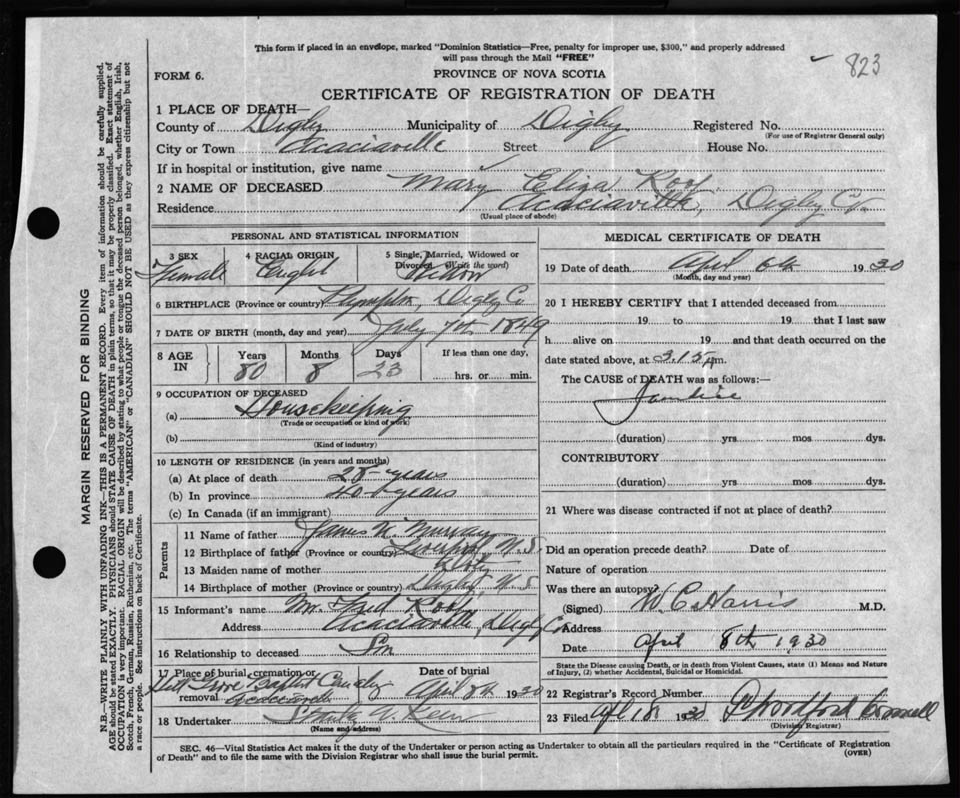 This form if placed in an envelope, marked "Dominion Statistics—Free, penalty for improper use, $300," and properly addressed
will pass through the Mail "FREE"
823
FORM 6.
PROVINCE OF NOVA SCOTIA
CERTIFICATE OF REGISTRATION OF DEATH
1 PLACE OF DEATH—
County of Digby Municipality of Digby Registered No.
(For use of Registrar General only)
City or Town Acaciaville Street House No.
If in hospital or institution, give name
2 NAME OF DECEASED Mary Eliza Roop
Residence Acaciaville, Digby Co.
(Usual place of abode)
PERSONAL AND STATISTICAL INFORMATION
3 SEX Female
4 RACIAL ORIGIN
5 Single, Married, Widowed or Divorced (Write the word) Widow
6 BIRTHPLACE (Province or country) Plympton, Digby Co
7 DATE OF BIRTH (month, day and year) July 7th 1849
8 AGE IN Years 80 Months 8 Days 23 If less than one day, hrs. or min.
9 OCCUPATION OF DECEASED
(a) Housekeeping
(Trade or occupation or kind of work)
(b)
(Kind of industry)
10 LENGTH OF RESIDENCE (in years and months)
(a) At place of death 28 years
(b) In province years
(c) In Canada (if an immigrant)
Parents
11 Name of father James Murray
12 Birthplace of father (Province or country) Liverpool N.S.
13 Maiden name of mother Doty
14 Birthplace of mother (Province or country) Digby, N.S.
15 Informant's name Mr. Fred Roop
Address Acaciaville, Digby Co
16 Relationship to deceased Son
17 Place of burial, cremation or removal Grove Baptist Cemetery Acaciaville
Date of burial April 8th 1930
18 Undertaker
(Name and address)
MEDICAL CERTIFICATE OF DEATH
19 Date of death April 6th 1930
(Month, day and year)
20 I HEREBY CERTIFY that I attended deceased from
19 to 19 that I last saw
h alive on 19 and that death occurred on the
date stated above, at 3.15 m.
The CAUSE of DEATH was as follows:—
Jaundice
(duration) yrs mos dys.
CONTRIBUTORY
(duration) yrs mos dys.
21 Where was disease contracted if not at place of death?
Did an operation precede death? Date of
Nature of operation
Was there an autopsy?
(Signed) W. C. Harris M.D.
Address
Date April 8th 1930
State the Disease causing Death, or in death from Violent Causes, state (1) Means and Nature
of Injury, (2) whether Accidental, Suicidal or Homicidal.
22 Registrar's Record Number
23 Filed 18 1930
(Division Registrar)
SEC. 46—Vital Statistics Act makes it the duty of the Undertaker or person acting as Undertaker to obtain all the particulars required in the "Certificate of Registration
of Death" and to file the same with the Division Registrar who shall issue the burial permit.
(OVER)
MARGIN RESERVED FOR BINDING
N.B.—WRITE PLAINLY WITH UNFADING INK—THIS IS A PERMANENT RECORD. Every item of information should be carefully supplied.
AGE should be stated EXACTLY. PHYSICIANS should STATE CAUSE OF DEATH in plain terms, so that it may be properly classified. Exact statement of
OCCUPATION is very important. RACIAL ORIGIN will be described by stating to what people or tongue the deceased person belonged, whether English, Irish,
Scotch, French, German, Russian, Ruthenian, etc. The terms "AMERICAN" or "CANADIAN" SHOULD NOT BE USED as they express citizenship but not
a race or people. See instructions on back of Certificate.